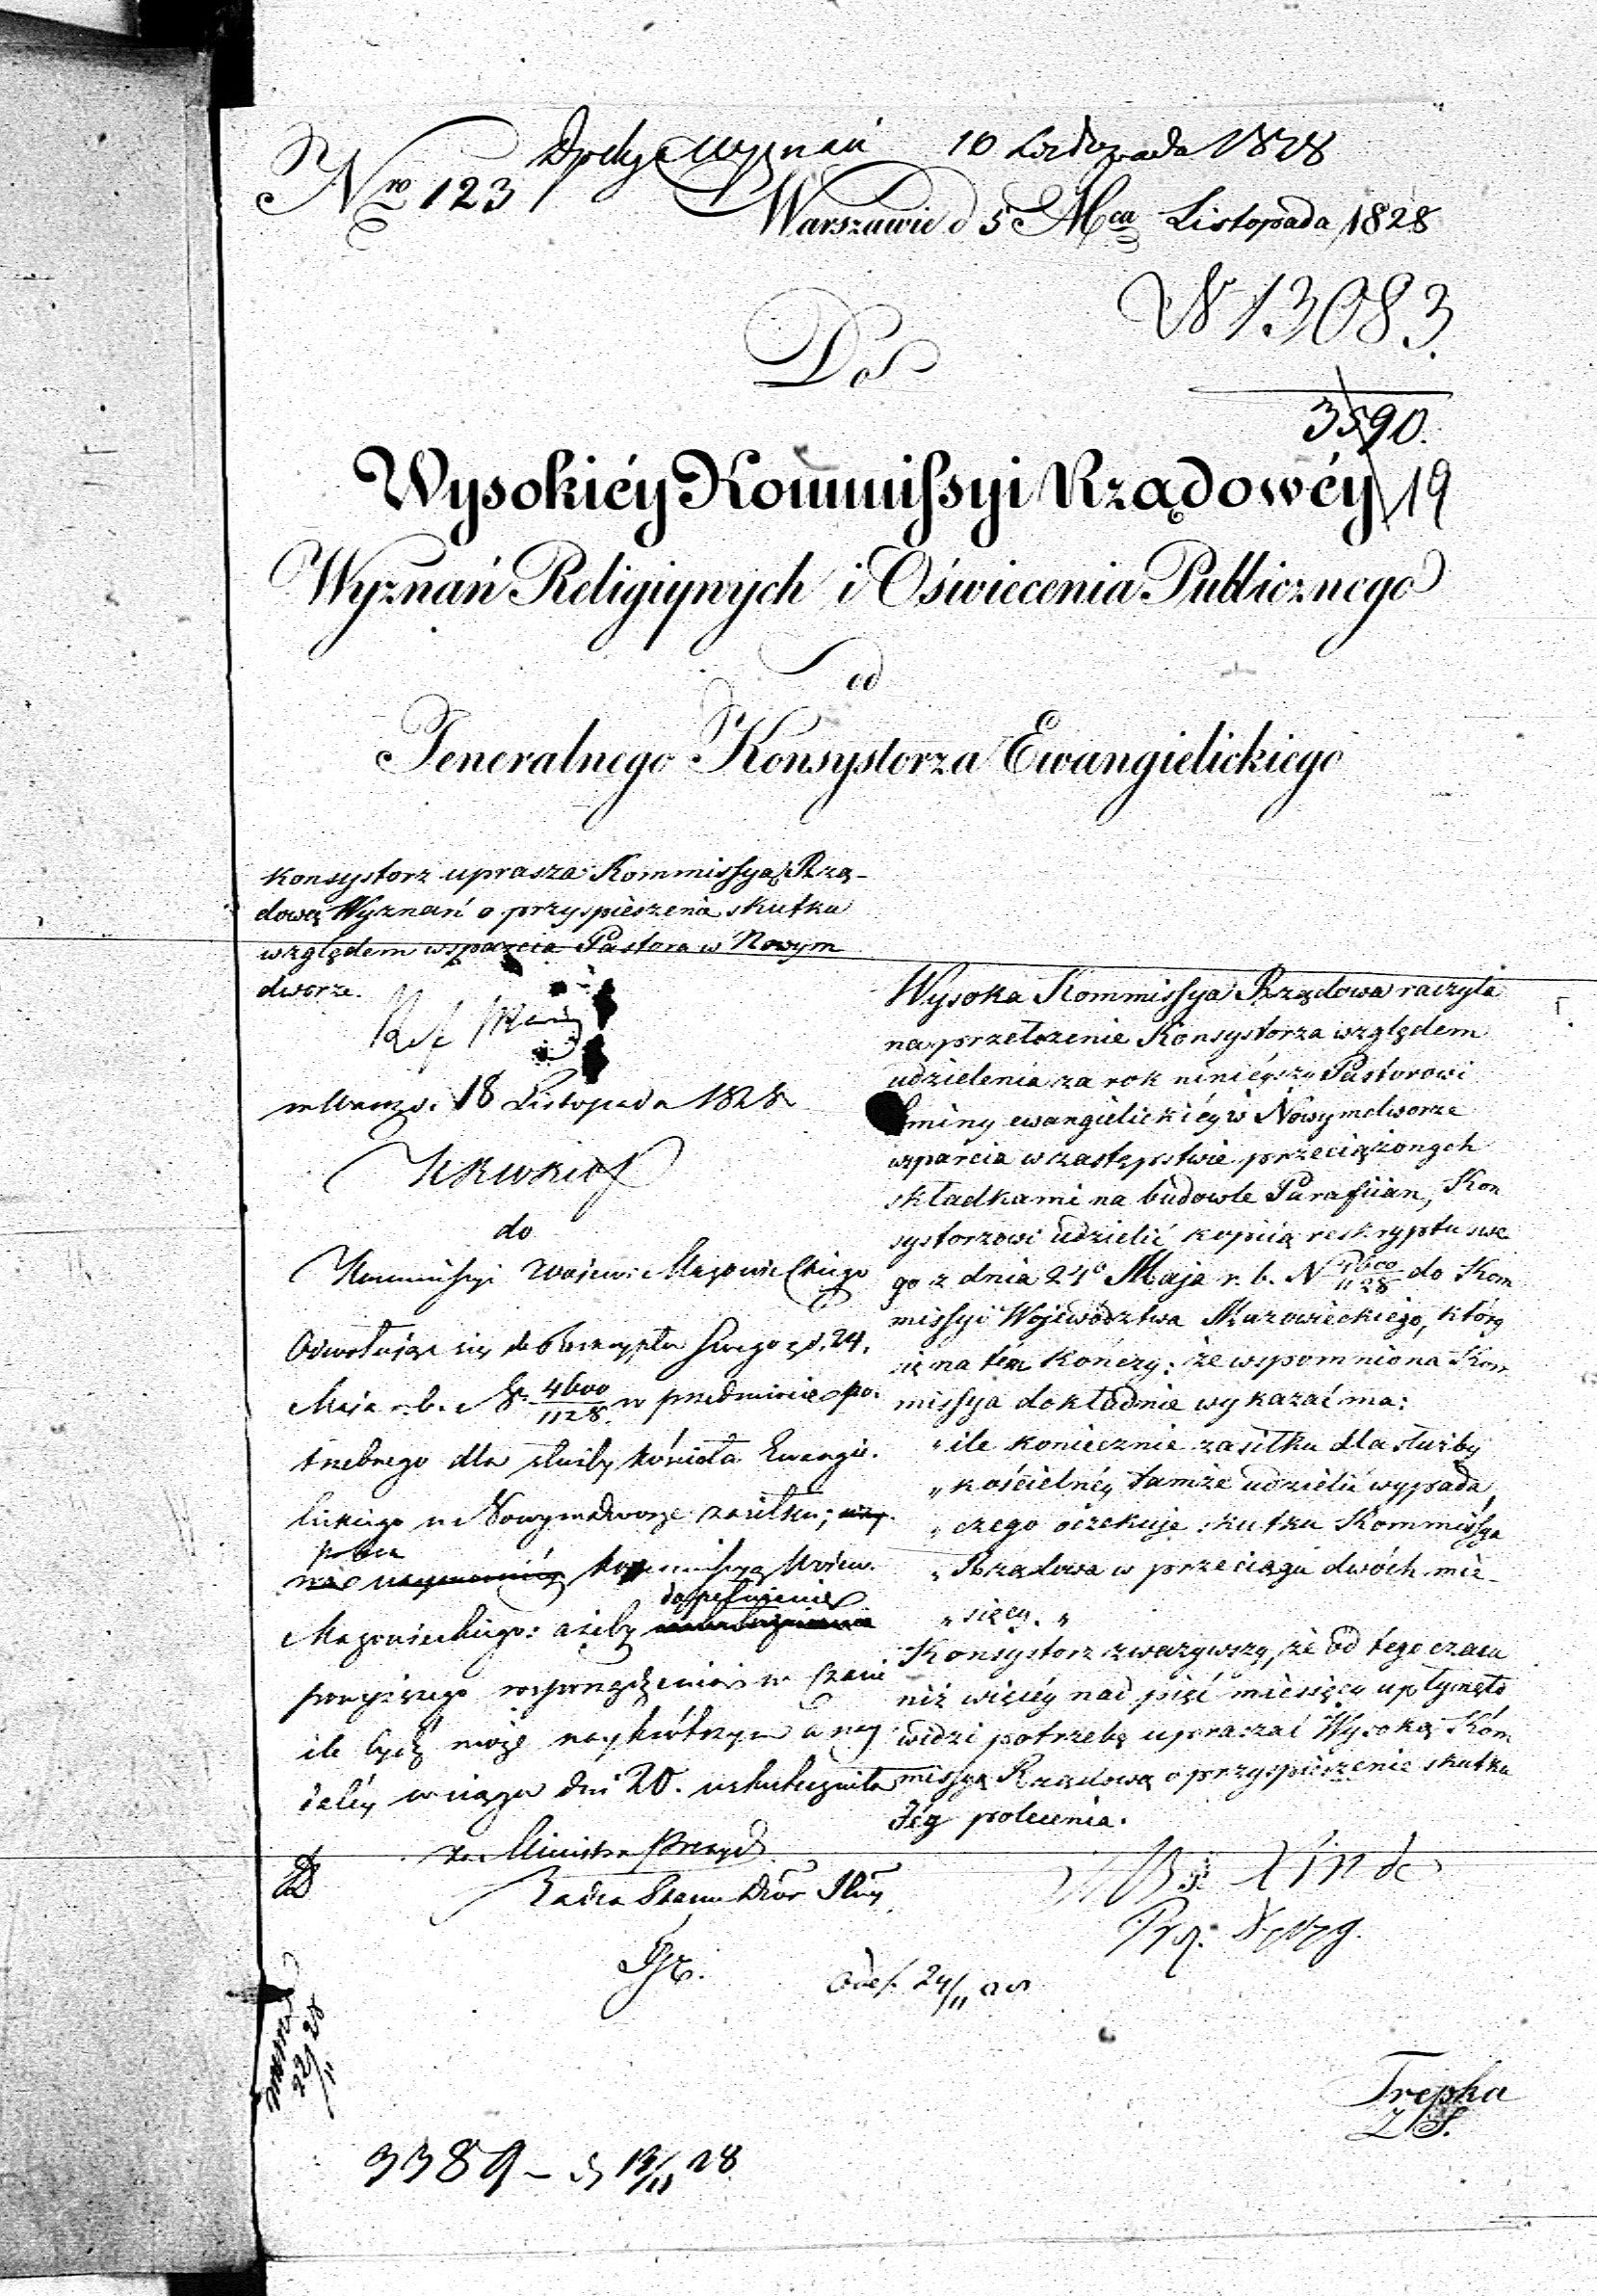 Wyznań 10 Listopada 1828
Nro 123
Warszawie d 5 Mca Listopada 1828
N 13083.
Do
3590.
19
Wysokiéy Kommissyi Rządowéy
Wyznań Religiynych i Oświecenia Publicznego
od
Jeneralnego Konsystorza Ewangielickiego
Konsystorz uprasza Kommissyą Rzą-
dową Wyznań o przyspieszenia skutku
względem wsparcia Pastora w Nowym
dworze.
18 Listopada 1828
do
Kommissyi Wojew: Mazowieckiego
Odwołując się do Reskryptu swego z d. 24.
Maja r. b. N. 4600/1128. w przedmiocie po-
trzebnego dla służby kościoła Ewangie-
lickiego w Nowymdworze zasiłku;
Kommissyą Wojew.
dopełnienie
Mazowieckiego: ażeby
powyższego rozporządzenia w czasie
ile być może naykrótszym a nay
daléy w ciągu dni 20. uskuteczniła
Ministra
Radca Stanu Dkor Jlny
Wysoka Kommissya Rządowa raczyła
na przełożenie Konsystorza względem
udzielenia za rok ninieyszy Pastorowi
Gminy ewangielickiéy w Nowymdworze
wsparcia w zastępstwie przeciążonych
składkami na budowle Parafiian, Kon
systorzowi udzielić kopiią reskryptu swe
go z dnia 24o Maja r. b. N 4600/1128 do Kom
missyi Województwa Mazowieckiego, którą
się na tém kończy: że wspomniona Kom
missya dokładnie wykazać ma:
„ile koniecznie zasiłku dla służby
„kościelnéy tamże udzielić wypada,
„czego oczekuje skutku Kommissya
„Rządowa w przeciągu dwóch mie-
„sięcy.„
Konsystorz zważywszy, że od tego czasu
niż więcéy nad pięć miesięcy upłynęło
widzi potrzebę upraszać Wysoką Kom
missyą Rządową o przyspieszenie skutku
Jéy polecenia.
Linde
24/11
22/11 28
Trepka
Z S.
3389 – d 19/11 28